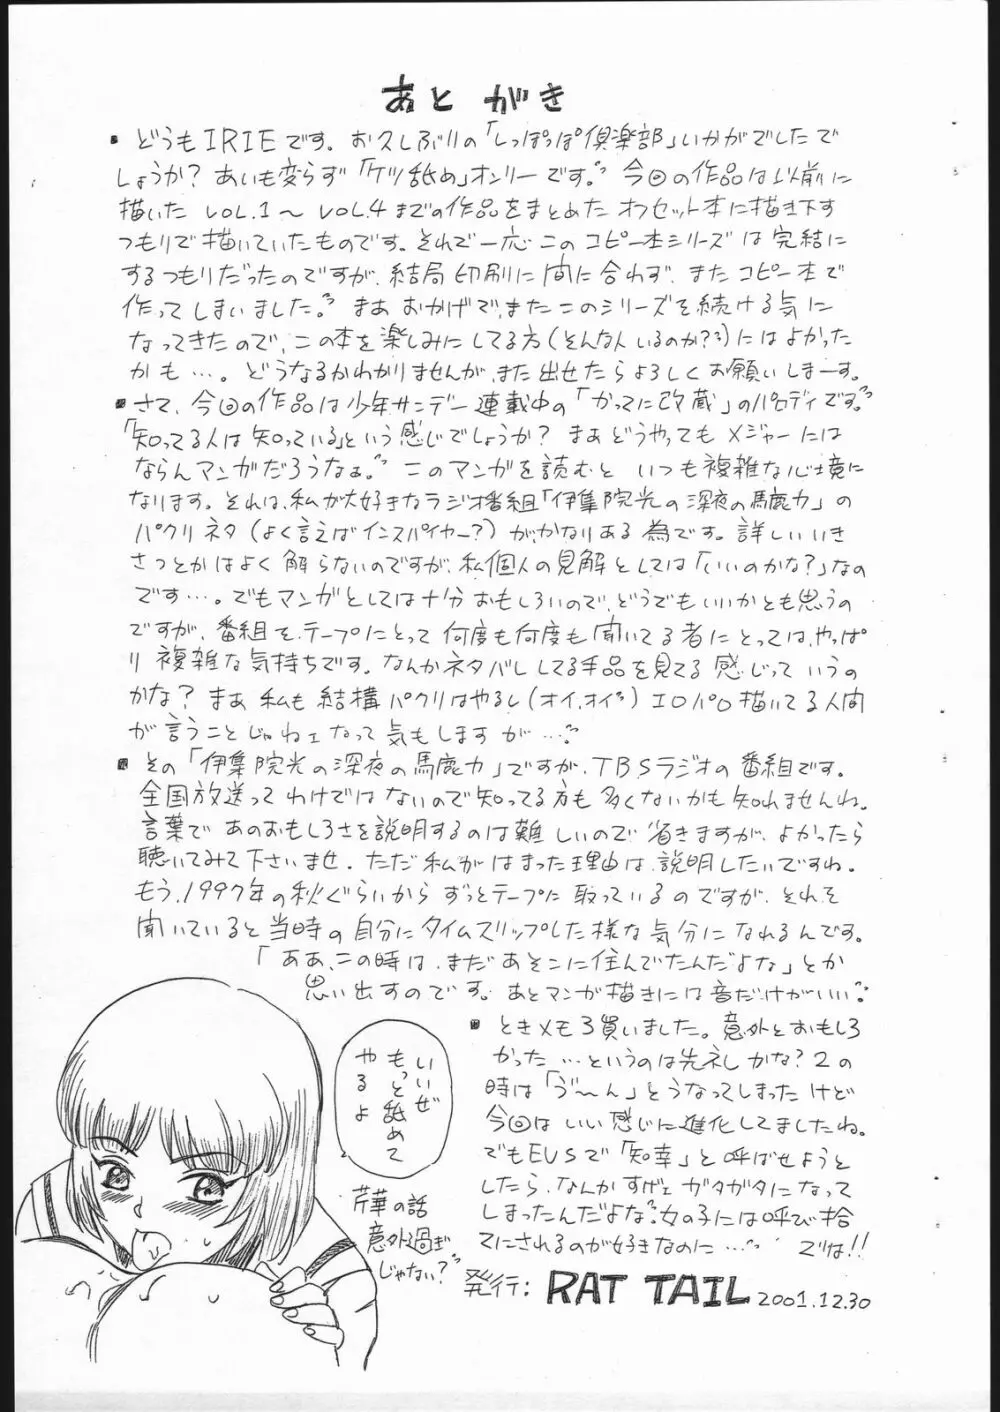 あとがき
・どうもIRIEです。お久しぶりの「しっぽっぽ倶楽部」いかがでしたで
しょうか？あいも変らず「ケツ舐め」オンリーです。今回の作品は以前に
描いた VOL.1～VOL.4までの作品をまとめたオフセット本に描き下す
つもりで描いていたものです。それで一応このコピー本シリーズは完結に
するつもりだったのですが、結局印刷に間に合わず、またコピー本で
作ってしまいました。まあおかげで、またこのシリーズを続ける気に
なってきたので、この本を楽しみにしてる方（そんな人いるのか？）にはよかった
かも…。どうなるかわかりませんが、また出せたらよろしくお願いしまーす。
・さて、今回の作品は少年サンデー連載中の「かってに改蔵」のパロディです。
「知ってる人は知っている」という感じでしょうか？まぁどうやってもメジャーには
ならんマンガだろうなぁ。このマンガを読むといつも複雑な心境に
なります。それは、私が大好きなラジオ番組「伊集院光の深夜の馬鹿力」の
パクリネタ（よく言えばインスパイヤー？）が、かなりある為です。詳しいいき
さつとかはよく解らないのですが、私個人の見解としては「いいのかな？」なの
です…。でもマンガとしては十分おもしろいので、どうでもいいかとも思うの
ですが、番組をテープにとって何度も何度も聞いてる者にとっては、やっぱ
り複雑な気持ちです。なんかネタバレしてる手品を見てる感じっていうの
かな？まぁ私も結構パクリはやるし（オイ,オイ）エロパロ描いてる人間
が言うことじゃねェなって気もしますが…。
・その「伊集院光の深夜の馬鹿力」ですが、TBSラジオの番組です。
全国放送ってわけではないので知ってる方も多くないかも知れませんね。
言葉であのおもしろさを説明するのは難しいので省きますが、よかったら
聴いてみて下さいませ。ただ私がはまった理由は、説明したいですね。
もう、1997年の秋ぐらいからずっとテープに取っているのですが、それを
聞いていると当時の自分にタイムスリップした様な気分になれるんです。
「ああ、この時は、まだあそこに住んでたんだよな」とか
思い出すのです。あとマンガ描きには音だけがいい。
・ときメモ3買いました。意外とおもしろ
かった…というのは失礼しかな？2の
時は「う゛～ん」とうなってしまったけど
今回はいい感じに進化してましたね。
でもEVSで「知幸」と呼ばせようと
したら、なんかすげェガタガタになって
しまったんだよな。女の子には呼び捨
てにされるのが好きなのに… では!!
芹華の話
意外過ぎ
じゃない？
発行：RAT TAIL 2001.12.30